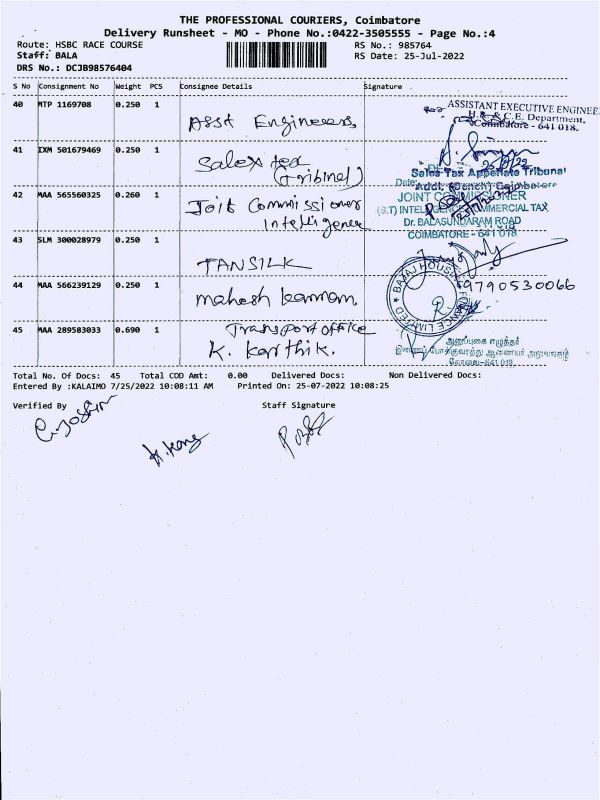 THE PROFESSIONAL COURIERS, Coimbatore
Delivery Runsheet - MO - Phone No.:0422-3505555 - Page No.:4
Route: HSBC RACE COURSE
RS No.: 985764
Staff: BALA
RS Date: 25-Jul-2022
DRS No.: DCJB98576404
S No Consignment No Weight PCS Consignee Details Signature
40 MTP 1169708 0.250 1
Asst Engineeers
ASSISTANT EXECUTIVE ENGINEE
H.R & C.E. Department.
Coimbatore - 641 018.
41 IXM 501679469 0.250 1
Sales tea
(Tribinel)
Sales Tax Appellate Tribunal
Date:
Addl. (Bench) Coimbatore
42 MAA 565560325 0.260 1
Joit Commissioner
Intelligence
JOINT COMMISSIONER
(S.T) INTELLIGENCE COMMERCIAL TAX
Dr. BALASUNDARAM ROAD
COIMBATORE - 641 018
43 SLM 300028979 0.250 1
TANSILK
44 MAA 566239129 0.250 1
mahesh kannan
BAJAJ HOUSING FINANCE LIMITED
9790530066
45 MAA 289583033 0.690 1
Transport office
K. Karthik.
அனுப்புகை எழுத்தர்
இணைப் போக்குவரத்து ஆணையர் அலுவலகம்
கோவை-641 018.
Total No. Of Docs: 45 Total COD Amt: 0.00 Delivered Docs: Non Delivered Docs:
Entered By :KALAIMO 7/25/2022 10:08:11 AM Printed On: 25-07-2022 10:08:25
Verified By Staff Signature